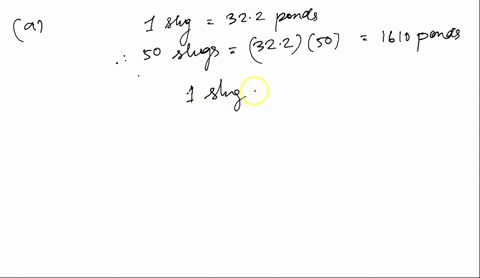 (a) 1 slug = 32.2 ponds
∴ 50 slugs = (32.2)(50) = 1610 ponds
1 slug